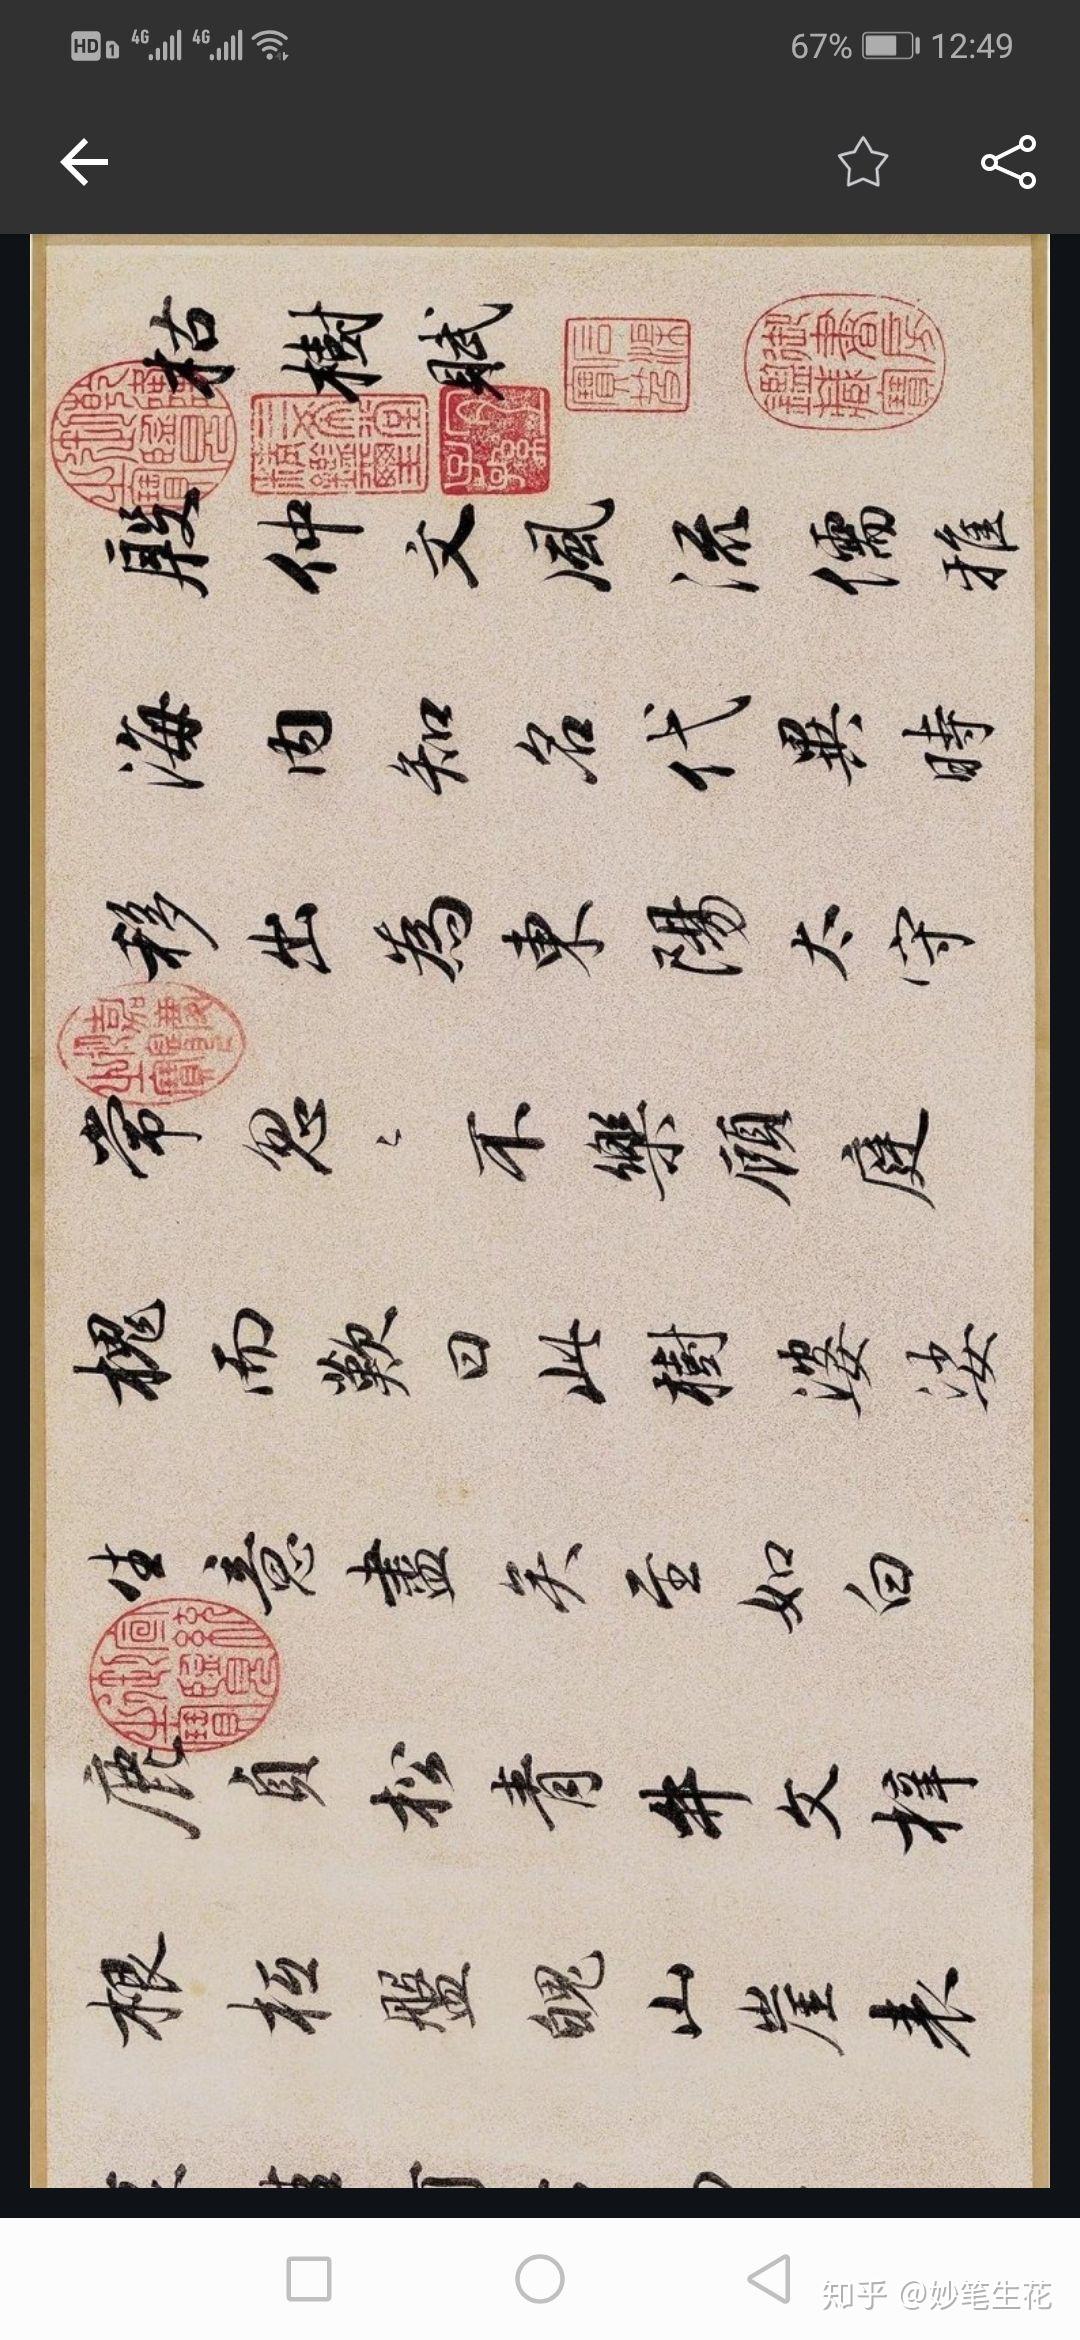 HD 1 4G 4G 67% 12:49
枯樹賦
殷仲文風流儒雅
海内知名代異時
移出為東陽太守
常忽々不樂顧庭
槐而歎曰此樹婆娑
生意盡矣至如白
鹿貞松青牛文梓
根柢盤魄山崖表
知乎 @妙笔生花